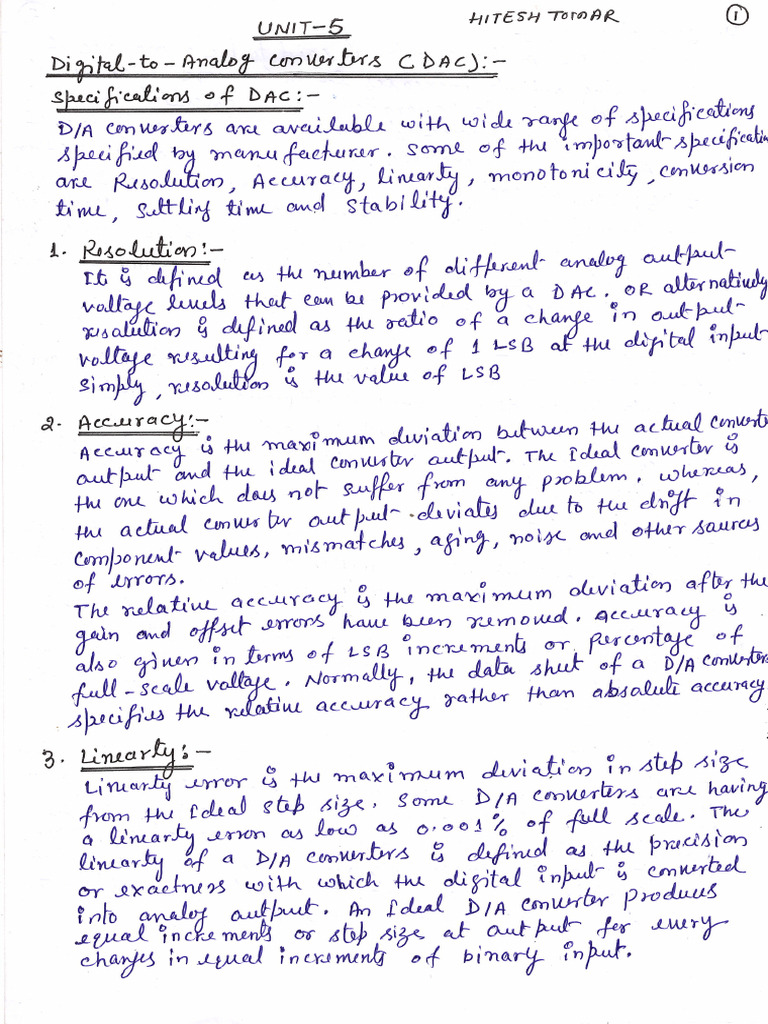 UNIT-5
HITESH TOMAR
1
Digital-to-Analog converters (DAC):-
Specifications of DAC:-
D/A converters are available with wide range of specifications
specified by manufacturer. Some of the important specification
are Resolution, Accuracy, linearty, monotonicity, conversion
time, settling time and stability.
1. Resolution:-
It is defined as the number of different analog output
voltage levels that can be provided by a DAC. OR alternatively
resolution is defined as the ratio of a change in output
voltage resulting for a change of 1 LSB at the digital input
Simply, resolution is the value of LSB
2. Accuracy:-
Accuracy is the maximum deviation between the actual converter
output and the ideal converter output. The Ideal converter is
the one which does not suffer from any problem. whereas,
the actual converter output deviates due to the drift in
component values, mismatches, aging, noise and other sources
of errors.
The relative accuracy is the maximum deviation after the
gain and offset errors have been removed. Accuracy is
also given in terms of LSB increments or percentage of
full-scale voltage. Normally, the data sheet of a D/A converters
specifies the relative accuracy rather than absolute accuracy
3. Linearty:-
Linearty error is the maximum deviation in step size
from the Ideal step size. Some D/A converters are having
a linearty error as low as 0.001% of full scale. The
linearty of a D/A converters is defined as the precision
or exactness with which the digital input is converted
into analog output. An Ideal D/A converter produces
equal increments or step size at output for every
changes in equal increments of binary input.